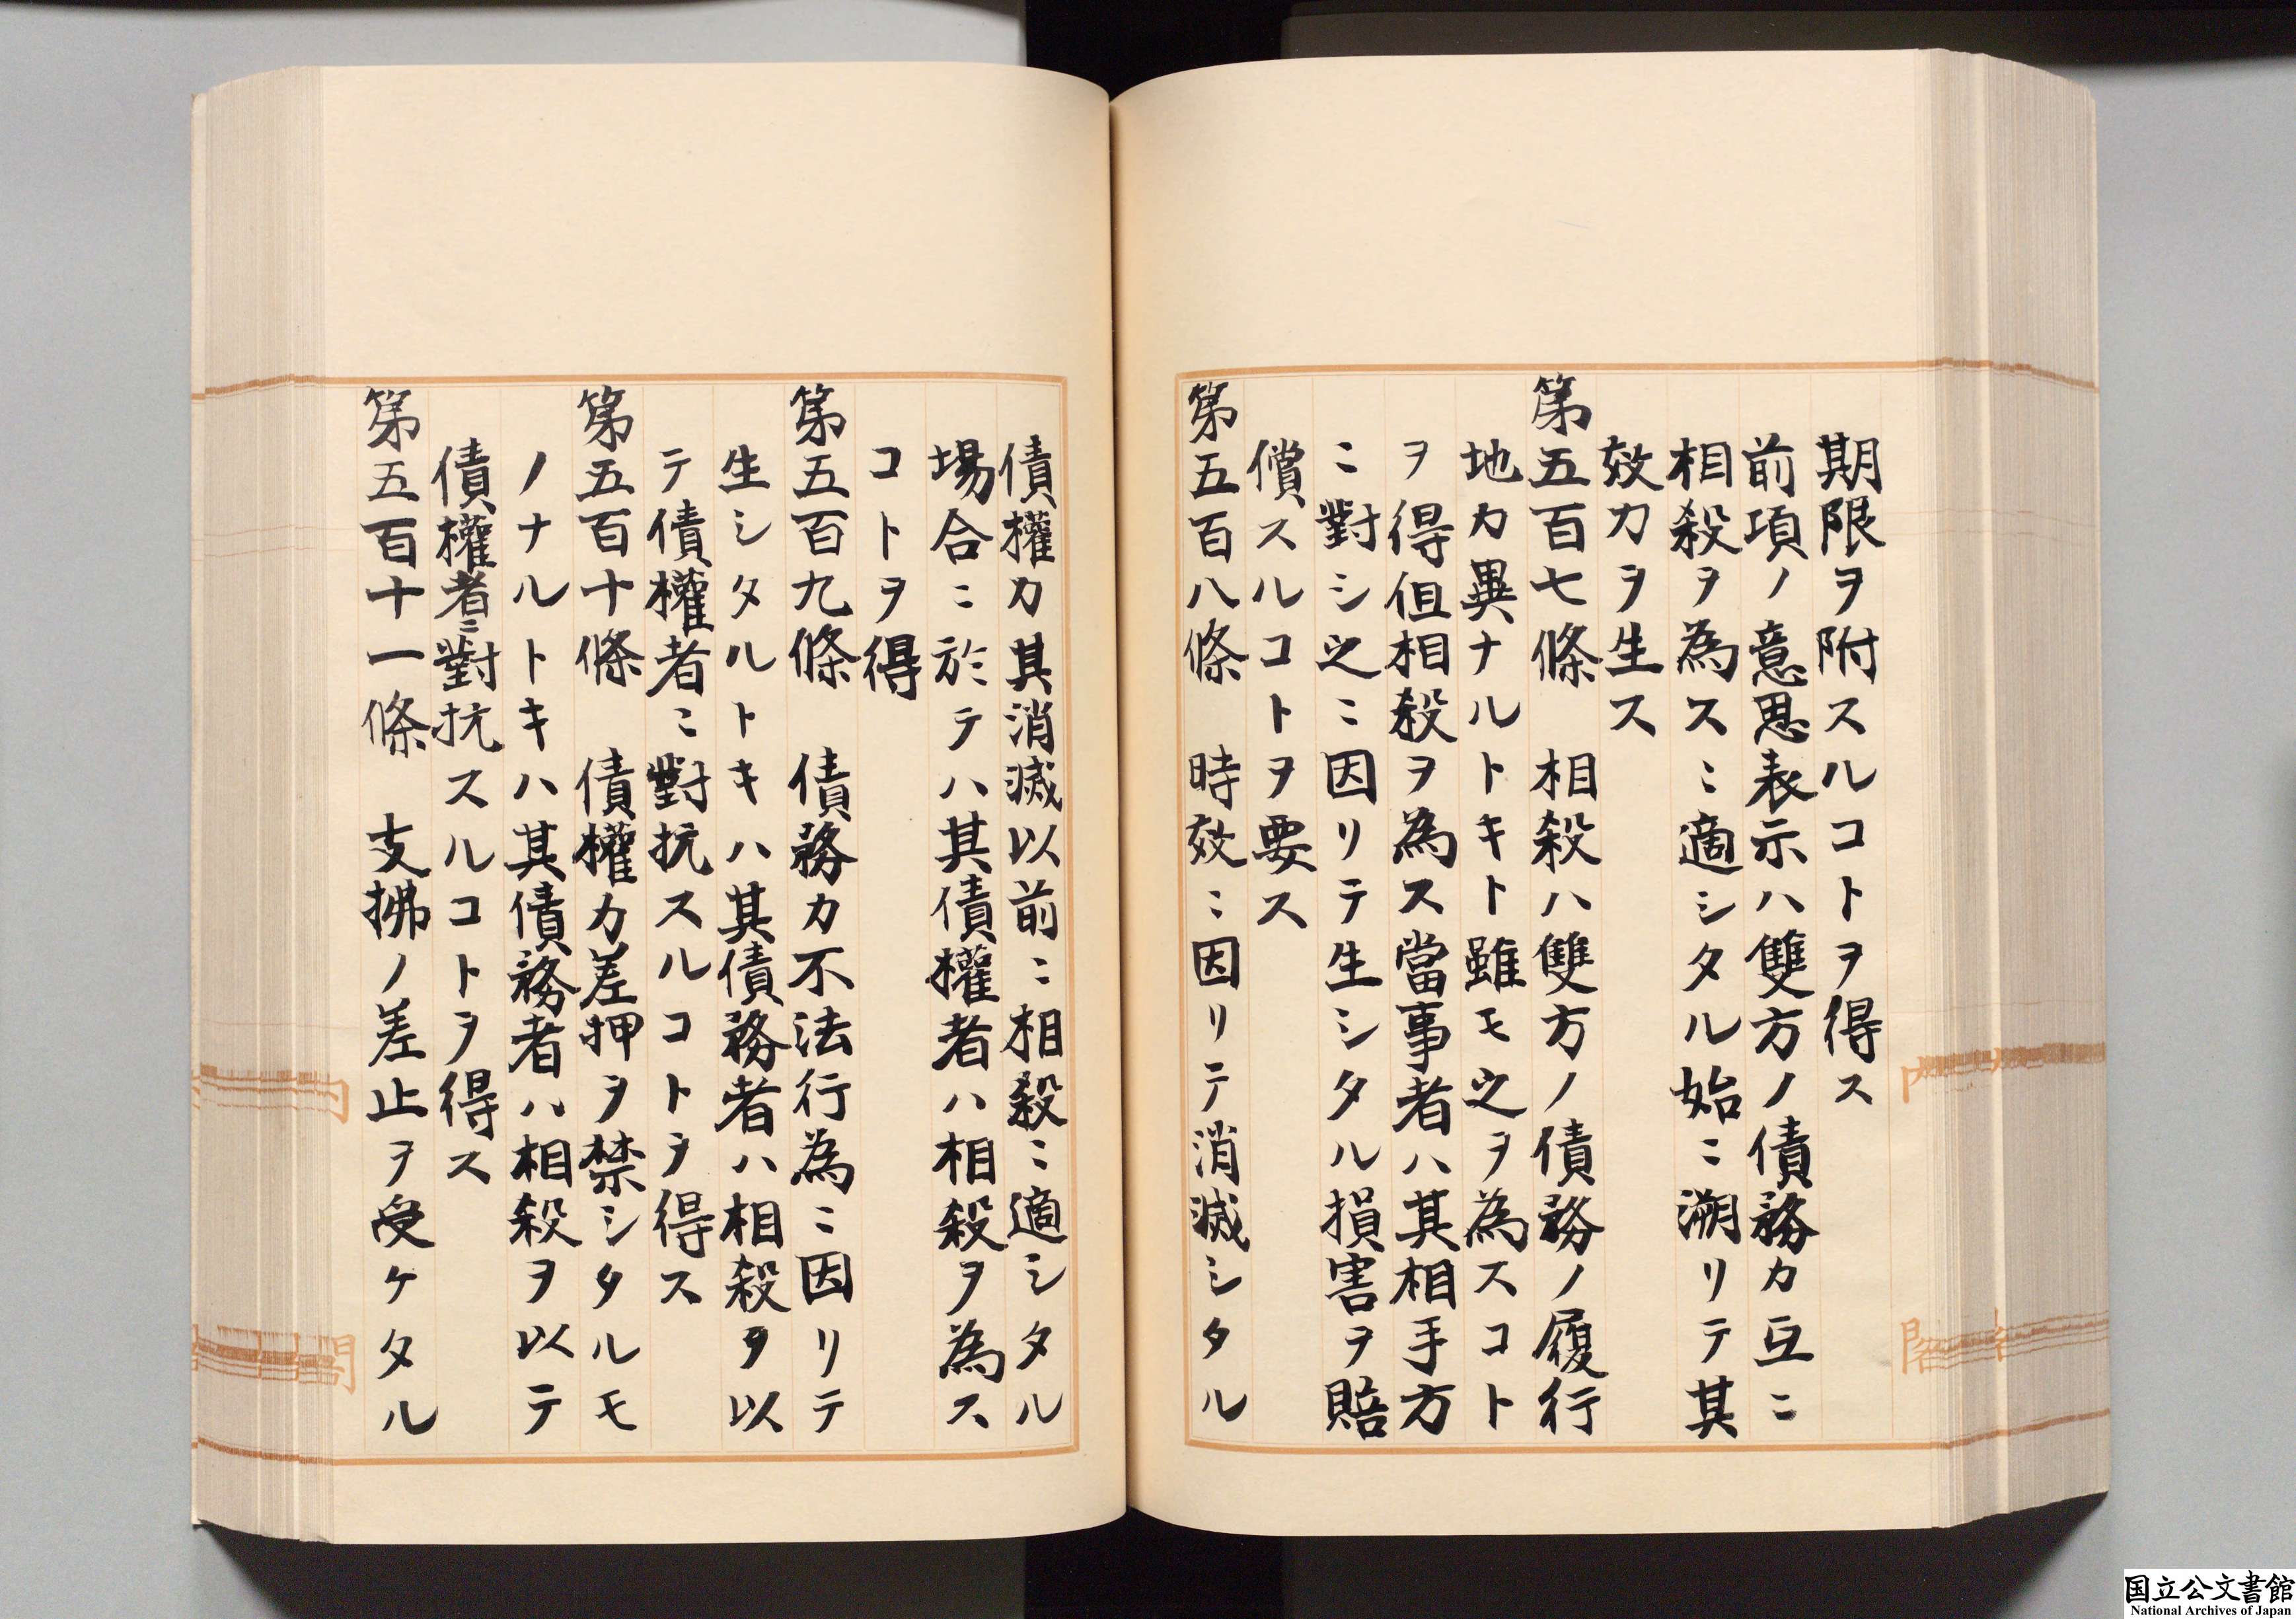 期限ヲ附スルコトヲ得ス
前項ノ意思表示ハ雙方ノ債務カ互ニ
相殺ヲ為スニ適シタル始ニ溯リテ其
效力ヲ生ス
第五百七條 相殺ハ雙方ノ債務ノ履行
地カ異ナルトキト雖モ之ヲ為スコト
ヲ得但相殺ヲ為ス當事者ハ其相手方
ニ對シ之ニ因リテ生シタル損害ヲ賠
償スルコトヲ要ス
第五百八條 時效ニ因リテ消滅シタル
債權カ其消滅以前ニ相殺ニ適シタル
場合ニ於テハ其債權者ハ相殺ヲ為ス
コトヲ得
第五百九條 債務カ不法行為ニ因リテ
生シタルトキハ其債務者ハ相殺ヲ以
テ債權者ニ對抗スルコトヲ得ス
第五百十條 債權カ差押ヲ禁シタルモ
ノナルトキハ其債務者ハ相殺ヲ以テ
債權者ニ對抗スルコトヲ得ス
第五百十一條 支拂ノ差止ヲ受ケタル
国立公文書館
National Archives of Japan